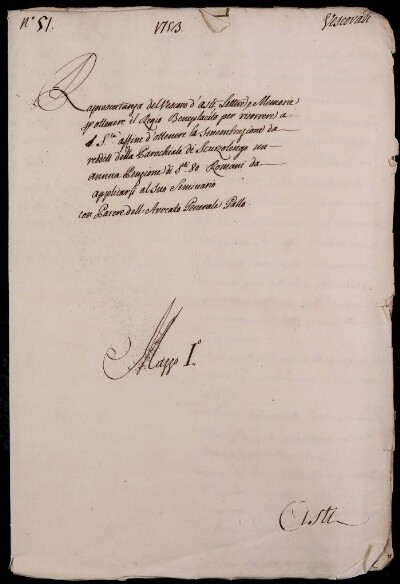 N.° 51. 1753 Vescovadi
Rapresentanza del Vescovo d'asti, Lettere, e Memorie
p ottenere il Regio Beneplacito per ricorrere a
S. S.tà affine d'ottenere la Smembrazione da
redditi della Parochiale di un
annua Penzione di S.ti 80 Romani da
applicarsi al suo Seminario
con Parere dell'Avocato Generale
Mazzo I.°
Asti